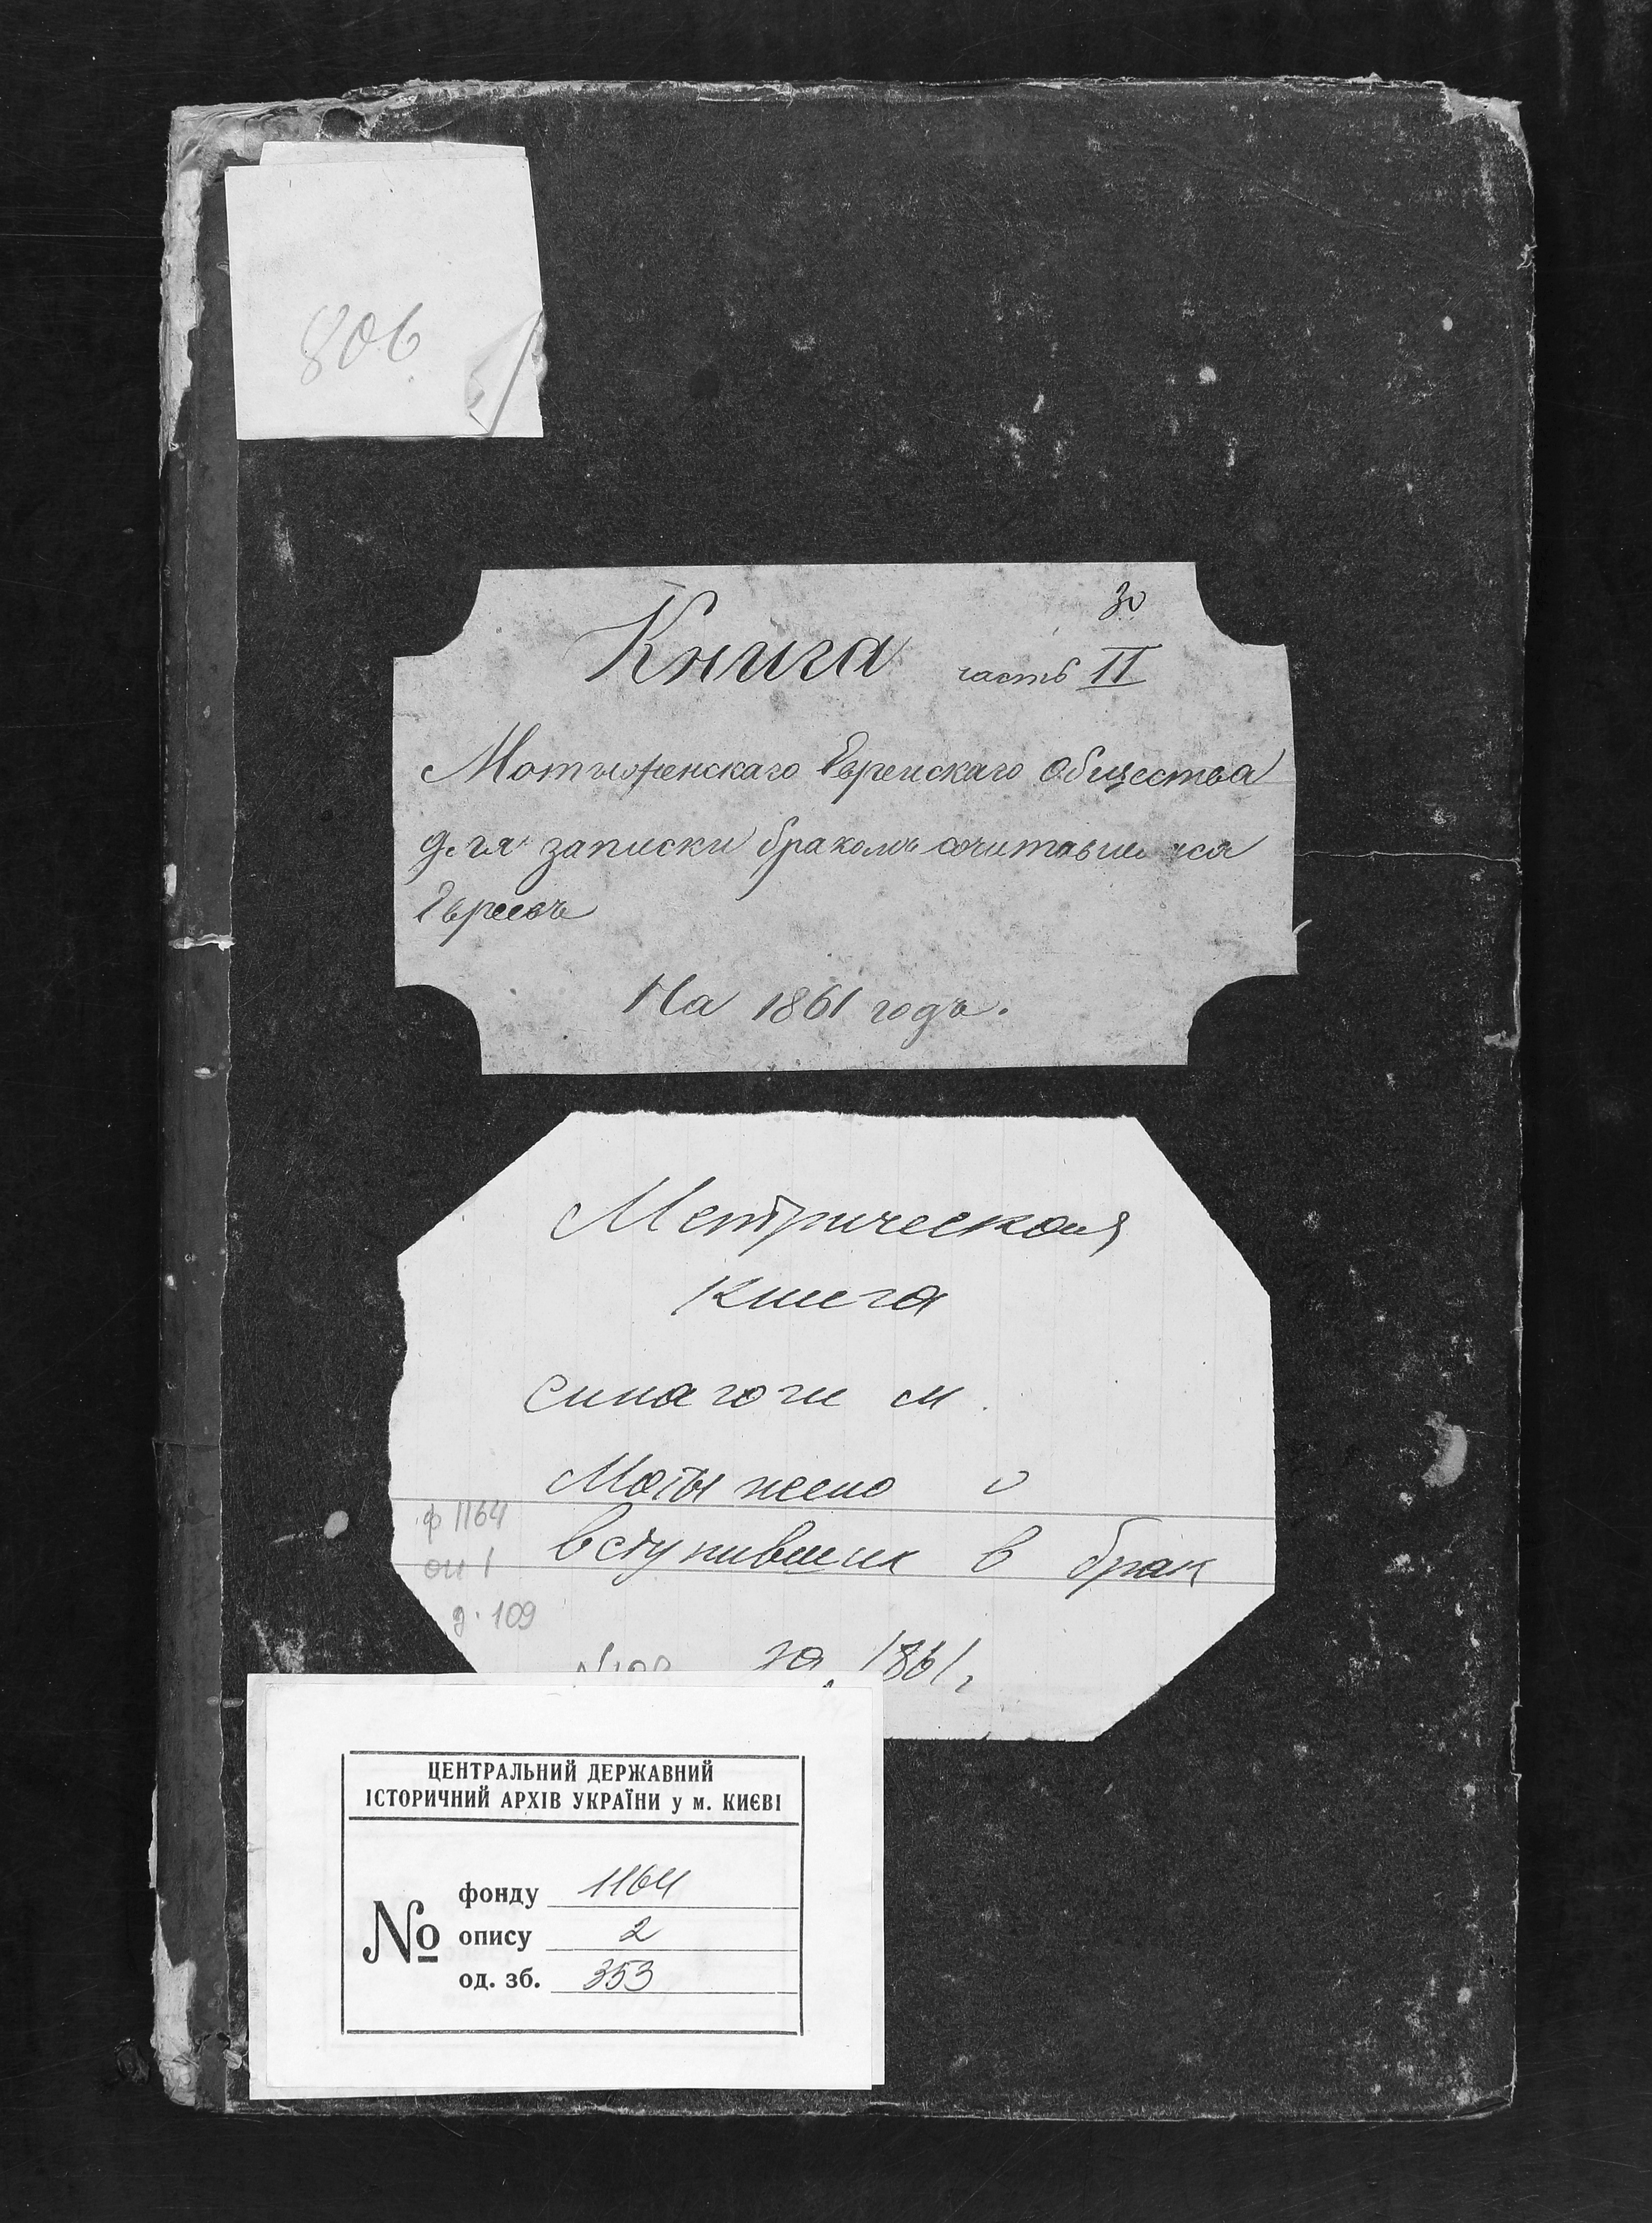 806
30
Книга часть II
Мотыженскаго Еврейскаго Общества
для записки бракомъ сочитавшихся
Евреевъ
На 1861 годъ.
Метрическая
книга
синагоги м.
Мотыжено о
вступивших в брак
ф 1164
оп 1
д. 109
за 1861г
ЦЕНТРАЛЬНИЙ ДЕРЖАВНИЙ
ІСТОРИЧНИЙ АРХІВ УКРАЇНИ у м. КИЄВІ
№
фонду 1164
опису 2
од. зб. 353